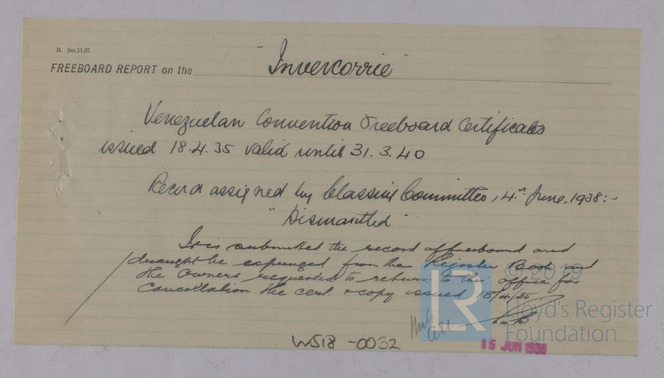 R. 2m.11,37.
FREEBOARD REPORT on the "Invercorrie"
Venezuelan Convention Freeboard Certificates
issued 18.4.35 valid until 31.3.40
Record assigned by Classing Committee, 4th June, 1938:-
"Dismantled"
It is submitted the record of freeboard and
draught be expunged from the Register Book and
the Owners requested to return to this office for
Cancellation the cert. & copy issued 18/4/35
© 2019
LR
Lloyd's Register
Foundation
15 JUN 1938
W518-0032